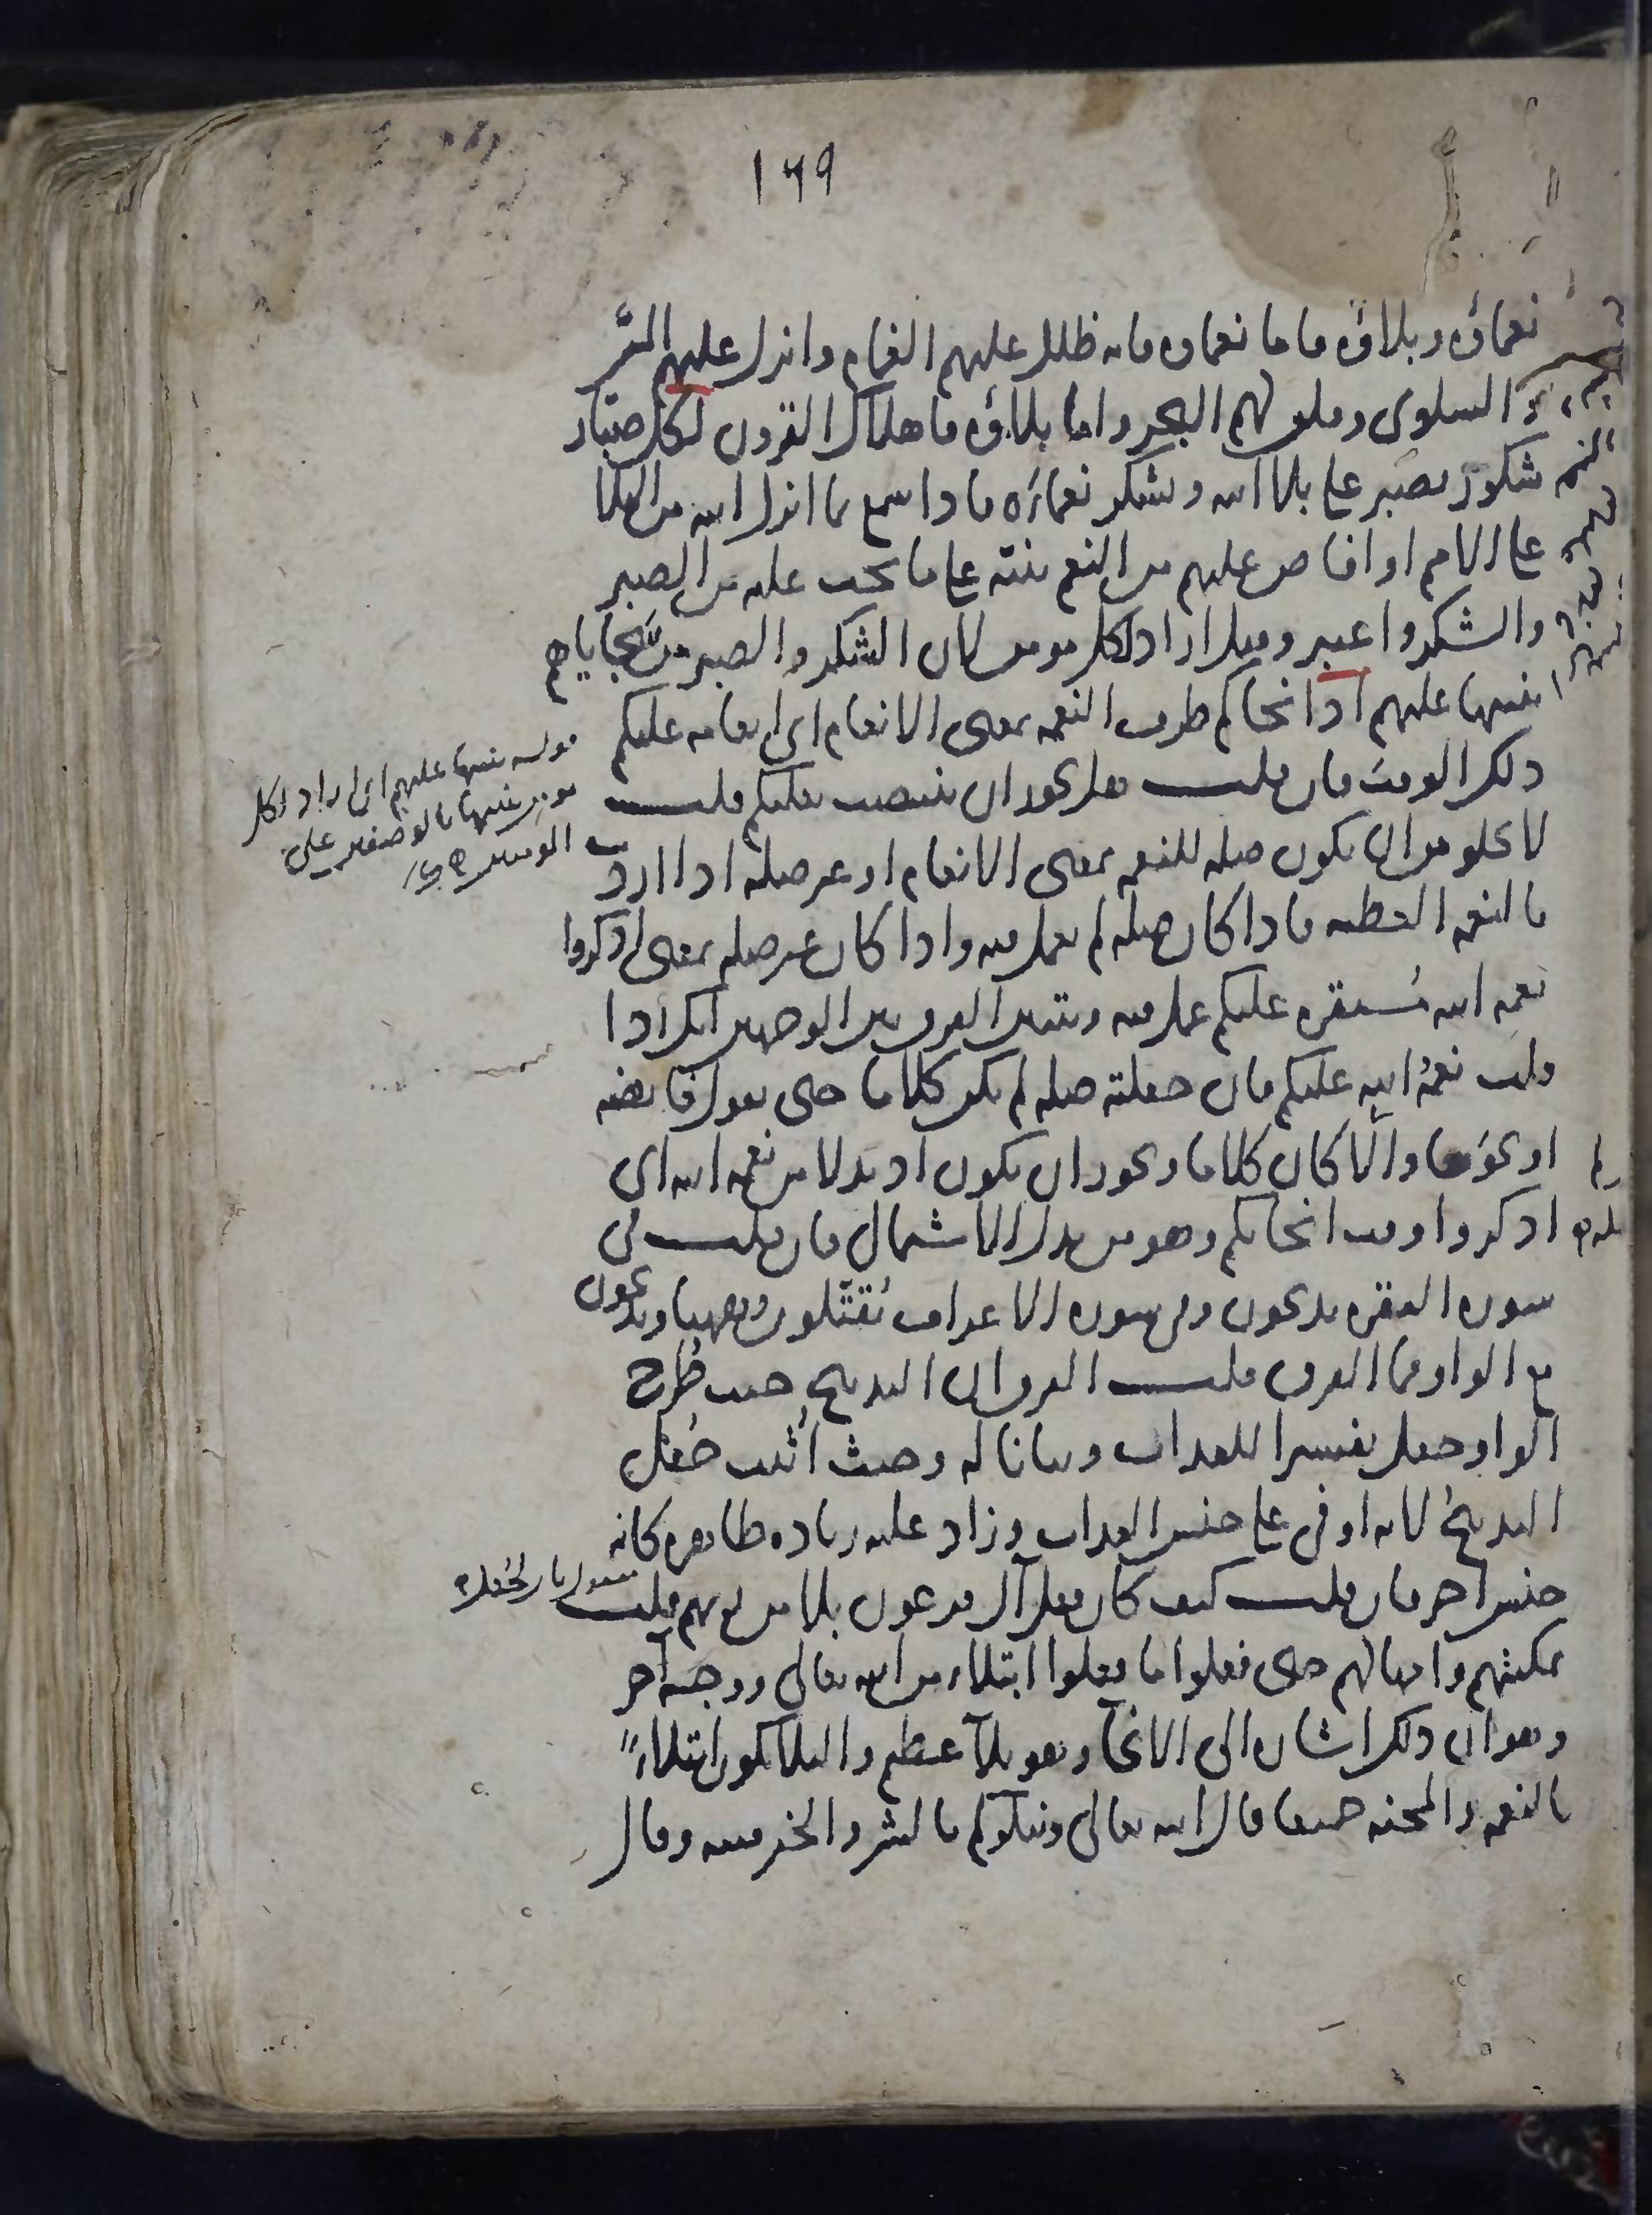 ١٦٩
نعماؤه وبلاؤه فاما نعماؤه فانه ظلل عليهم الغمام وانزل عليهم المنّ
والسلوى وفلق لهم البحر واما بلاؤه فاهلاك القرون لكل صبّار
شكور يصبر على بلاء الله ويشكر نعماءه فاذا سمع بما انزل الله من البلاء
على الامم او افاض عليهم من النعم تنبّه على ما يجب عليه من الصبر
والشكر واعتبر وقيل اراد لكل مومن لان الشكر والصبر من سجاياهم
تنبيها عليهم اذ انجاكم ظرف للنعمة بمعنى الانعام اى انعامه عليكم
ذلك الوقت فان قلت هل يجوز ان ينتصب بعليكم قلت
لا يخلو من ان يكون صلة للنعمة بمعنى الانعام او غير صلة اذا اردت
بالنعمة العطية فاذا كان صلة لم يعمل فيه واذا كان غير صلة بمعنى اذكروا
نعمة الله مستقرة عليكم عمل فيه ويتبين الفرق بين الوجهين انك اذا
قلت نعمة الله عليكم فان جعلته صلة لم يكن كلاما حتى يقول فايضة
او نحوها والّا كان كلاما ويجوز ان يكون اذ بدلا من نعمة الله اى
اذكروا وقت انجائكم وهو من بدل الاشتمال فان قلت فى
سورة البقرة يذبحون وفى سورة الاعراف يُقتّلون وههنا ويذبحون
مع الواو فما الفرق قلت الفرق ان التذبيح حيث طُرح
الواو جعل تفسيرا للعذاب وبيانا له وحيث اُثبت جُعل
التذبيح لانه اوفى على جنس العذاب وزاد عليه زيادة ظاهرة كانه
جنس آخر فان قلت كيف كان فعل آل فرعون بلاء من ربهم قلت
تمكينهم وامهالهم حتى فعلوا ما فعلوا ابتلاء من الله تعالى ووجه آخر
وهو ان ذلك اشارة الى الانجاء وهو بلاء عظيم والبلاء يكون ابتلاءً
بالنعمة والمحنة جميعا قال الله تعالى ونبلوكم بالشر والخير فتنة وقال
قوله تنبيها عليهم اى اراد لكل
مومن تنبيها بالوصفين على
المومنين